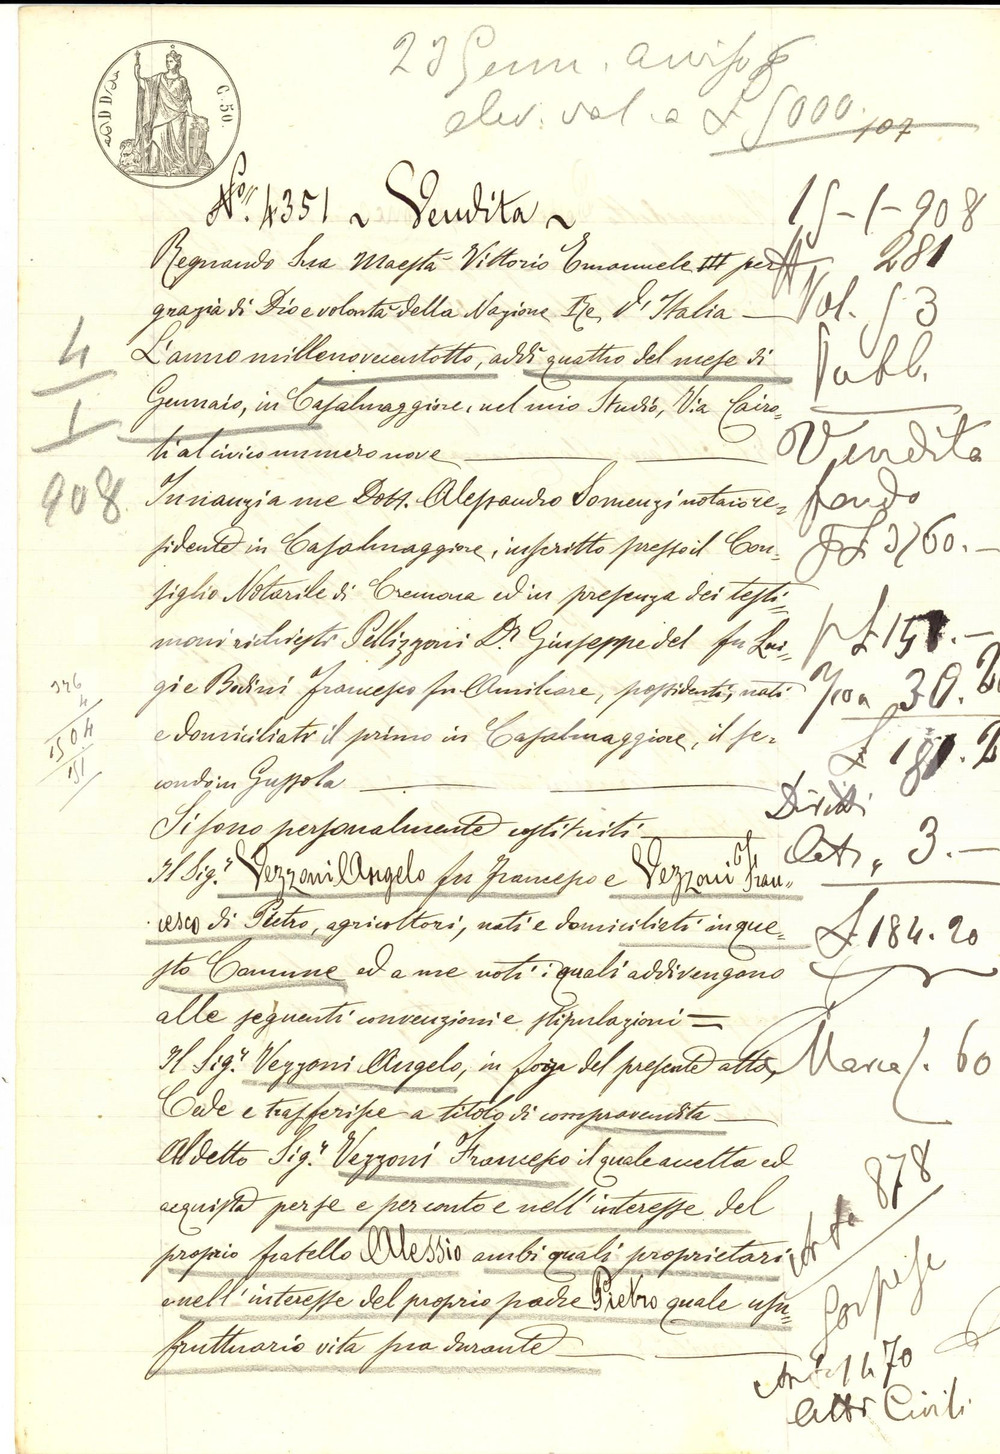 23 Genn. avviso
elev. val. a £ 5000
107
C. 50.
No. 4351 ~ Vendita ~
Regnando Sua Maestà Vittorio Emanuele III per
grazia di Dio e volontà della Nazione Re d'Italia —
L'anno millenovecentotto, addì quattro del mese di
Gennaio, in Casalmaggiore, nel mio Studio, Via Cairo=
li al civico numero nove
Innanzi a me Dott. Alessandro Somenzi notaio re=
sidente in Casalmaggiore, inscritto presso il Con=
siglio Notarile di Cremona ed in presenza dei testi=
moni richiesti Pellizzoni Dr Giuseppe del fu Lui=
gi e Bodini Francesco fu Amilcare, possidenti, nati
e domiciliati il primo in Casalmaggiore, il se=
condo in Gussola
Si sono personalmente costituiti
Il Sig.r Vezzoni Angelo fu Francesco e Vezzoni Fran=
cesco di Pietro, agricoltori, nati e domiciliati in que=
sto Comune ed a me noti i quali addivengono
alle seguenti convenzioni e stipulazioni =
Il Sig.r Vezzoni Angelo, in forza del presente atto,
Cede e trasferisce a titolo di compravendita
Al detto Sig.r Vezzoni Francesco il quale accetta ed
acquista per se e per conto e nell'interesse del
proprio fratello Alessio ambi quali proprietari
e nell'interesse del proprio padre Pietro quale usu=
fruttuario vita sua durante
4
1
908
376
4
1504
151
15-1-908
281
Vol. 53
Pubb.
Vendita
fondo
£ 3760.-
£ 151.-
30.20
£ 181.20
Diritti
3.-
£ 184.20
Marca f. 60
878
1470
Atti Civili